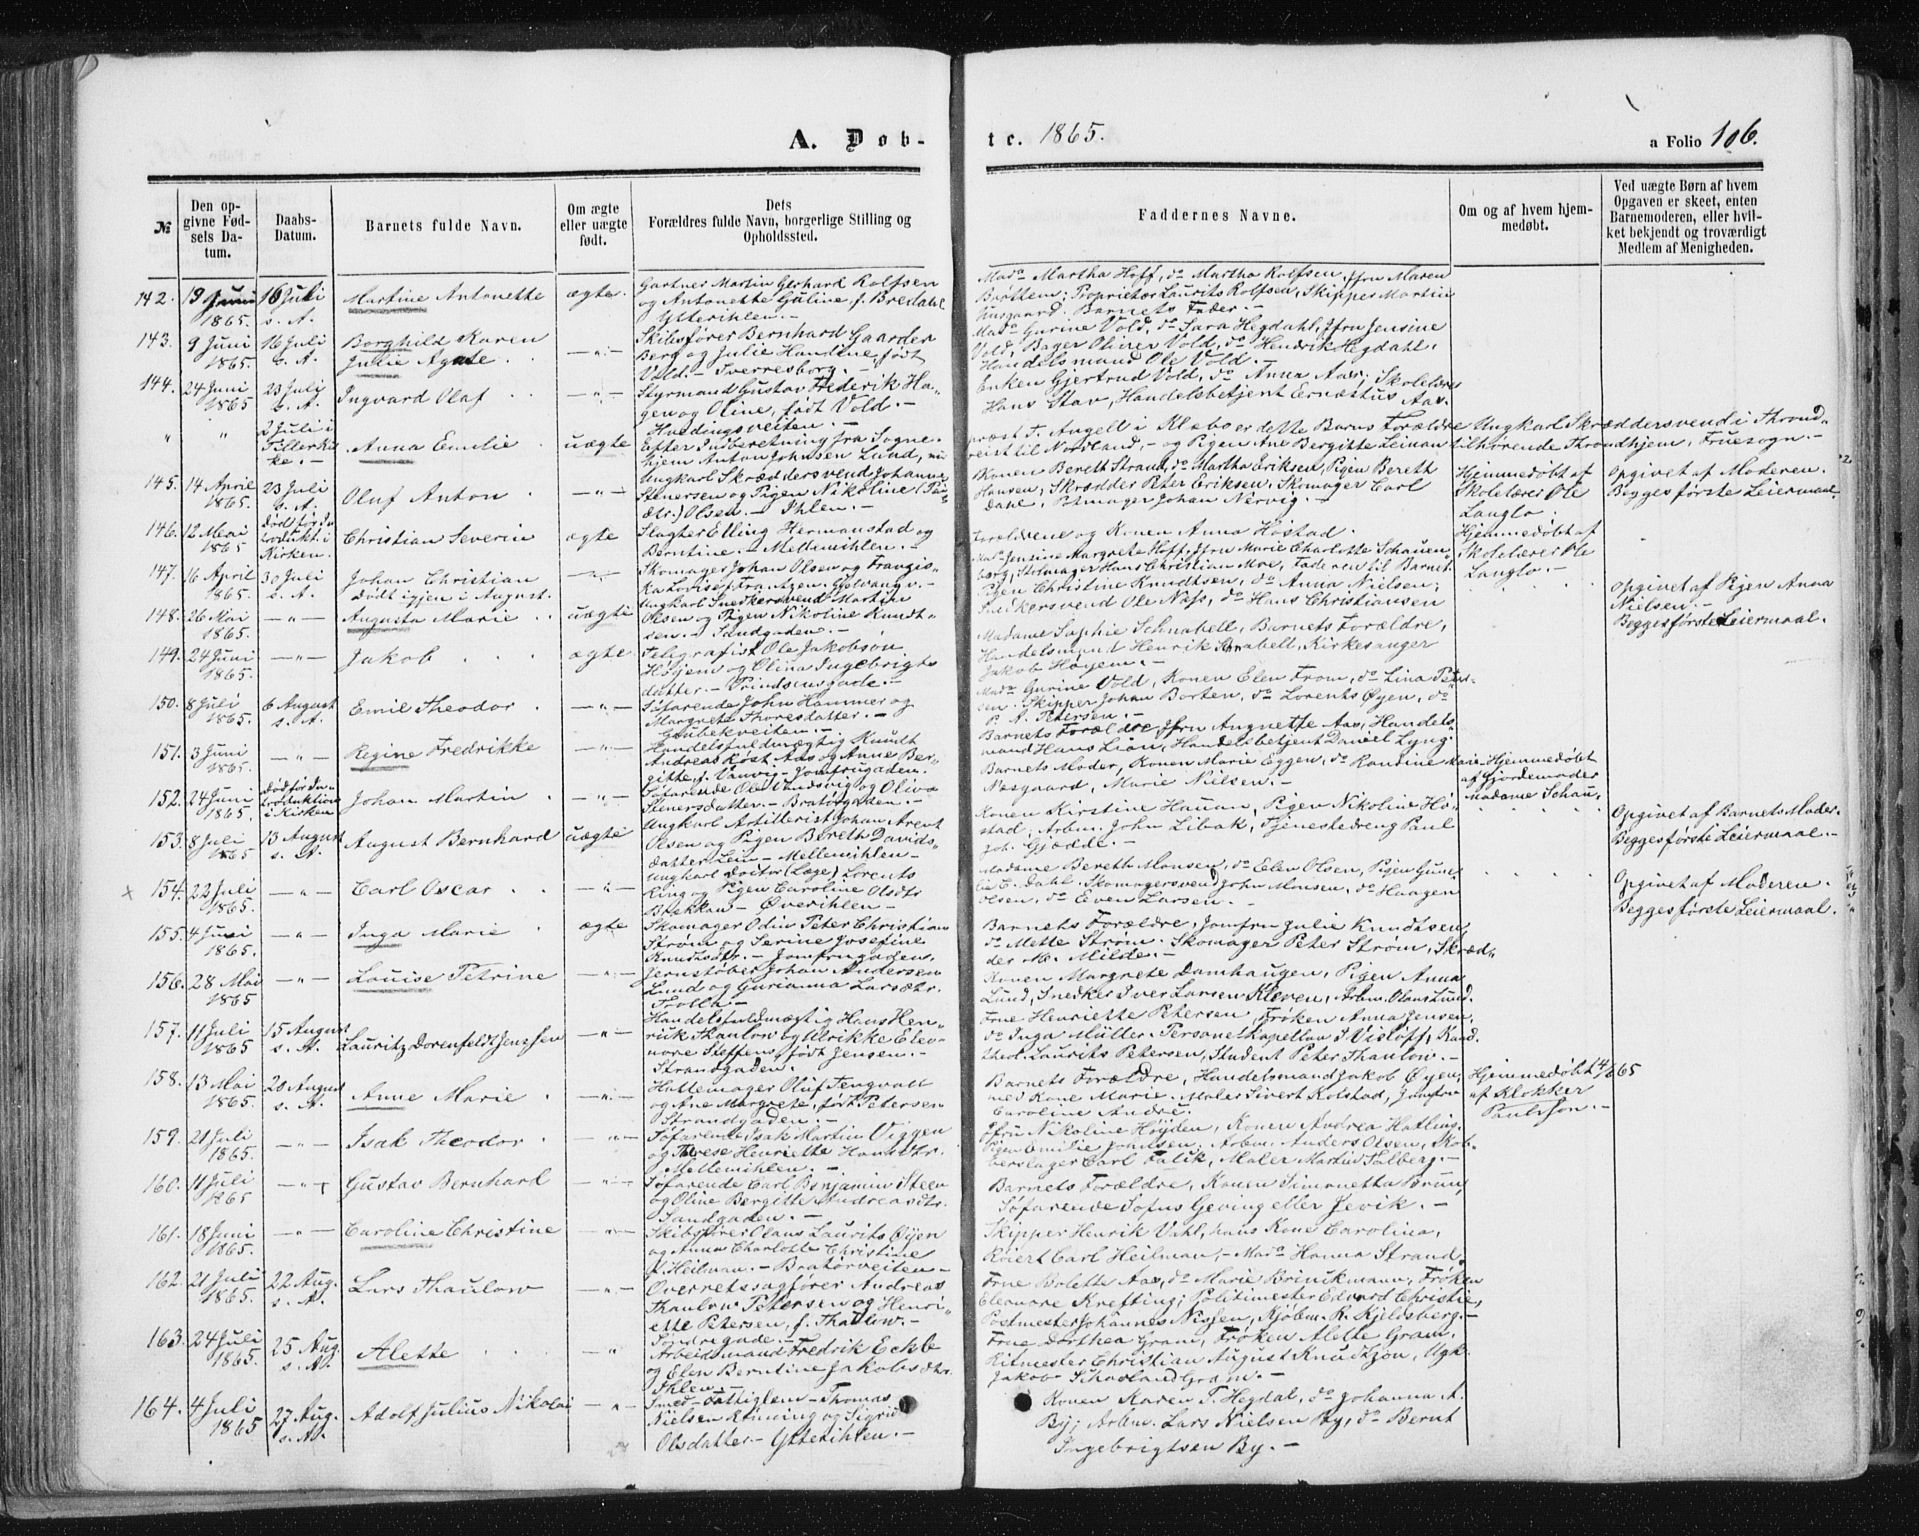 A. Døb-
te. 1865.
a Folio 106.
№
Den opgivne Fødsels Datum.
Daabs-Datum.
Barnets fulde Navn.
Om ægte eller uægte født.
Dets Forældres fulde Navn, borgerlige Stilling og Opholdssted.
Faddernes Navne.
Om og af hvem hjemmedøbt.
Ved uægte Børn af hvem Opgaven er skeet, enten Barnemoderen, eller hvilket bekjendt og troværdigt Medlem af Menigheden.
142. 1865. 16 Juli s. A. Martine Antonette ægte.
Gartner Martin Gerhard Rolfsen
og Antonette Guline f. Bredahl
Ytterihlen.-
Mad. Martha Hoff, do Martha Rolfsen, Jfru Maren
Proprietær Laurits Rolfsen, Skipper Martin
Barnets Fader.-
143. 9 Juni 1865. 16 Juli s. A. Borghild Karen Julie Agate -"-
Skibsfører Bernhard Gaarder
Berg og Julie Hansine født
Vold.- Sverresborg.-
Mad. Gurine Vold, do Sara Hegdahl, Jfru Jensine
Vold, Bager Oliver Vold, do Hendrik Hegdahl,
Handelsmand Ole Vold.-
144. 24 Juni 1865 23 Juli s. A. Ingvard Olaf -"-
Styrmand Gustav Frederik Ha-
gen og Oline, født Vold.-
Enken Gjertrud Vold, do Anna Aas, Skolelærer
Hans Stav, Handelsbetjent Ernæstus Aas.
" " 2 Juli i Tillerkirke.- Anna Emilie uægte
Efter Indberetning fra Sogne-
præst F. Angell i Klæbo er dette Barns Forældre Ungkarl Skræddersvend i Thrond-
hjem Anton Johnsen Lund, nu
reist til Nordland,- og Pigen Ane Bergitte Leinan tilhørende Throndhjem, Fruesogn.-
145. 14 April 1865. 23 Juli s. A. Oluf Anton -"-
Ungkarl Skræddersvend Johannes
Stenersen og Pigen Nikoline
Olsen.- Ihlen.-
Konen Bereth Strand, do Martha Eriksen, Pigen Bereth
Hansen, Skrædder Peter Eriksen, Skomager Carl
Dahl, Johan Nervig.-
Hjemmedøbt af Skolelærer Ole Langlo.-
Opgivet af Moderen.
Begges første Leiermaal.
146. 12 Mai 1865 Christian Severin ægte
Slagter Elling Hermanstad og
Berntine.- Mellemihlen.-
Forældrene og Konen Anna Høstad.
Hjemmedøbt af Skolelærer Ole Langlo.-
147. 16 April 1865. 30 Juli s. A. Johan Christian -"-
Dødt igjen i August.
Skomager Johan Olsen og
Jensine Margrete Hoff, Jfru Marie Charlotte Schauen-
borg, Hans Christian Moe, Faderen til Barnet
148. 26 Mai 1865. -"- Augusta Marie uægte
Ungkarl Snedkersvend Martin
Olsen og Pigen Nikoline Knudt-
sen.- Sandgaden.-
Pigen Christine Knudtsen, do Anna Nielsen;
Snedkersvend Ole Næss, do Hans Christiansen
Opgivet af Pigen Anna
Nielsen.-
Begges første Leiermaal.
149. 24 Juni 1865. -"- Jakob ægte
Telegrafist Ole Jakobson
Høijem og Olina Ingebrigts
datter.- Prindsensgade.-
Madame Sophie Schnabell, Barnets Forældre,
Handelsmand Henrik Schnabell, Kirkesanger
Jakob Høyem.-
150. 8 Juli 1865. 6 August s. A. Emil Theodor -"-
Søfarende John Hammer og
Margrete Thoresdatter.-
Mad. Gurine Vold, Konen Elen From, do Lina Peter-
sen. Skipper Johan Borten, do Lorents Øyen, do
P. A. Petersen.-
151. 3 Juni 1865. -"- Regine Fredrikke -"-
Handelsfuldmægtig Knudt
Andreas Røst Aas og Anne Ber-
gitte f. Vanvig.- Jomfrugaden.
Barnets Forældre, Jfru Angnette Aas, Handels-
mand Hans Lian, Handelsbetjent Daniel Lyng.
152. 24 Juni 1865. Død før Introduktion i Kirken Johan Martin -"-
Søfarende Ole Vandsvig og Oliva
Stenersdatter.- Bratørgaden.-
Barnets Moder, Konen Marie Eggen, do Randine
Næsgaard, Marie Nielsen.-
Hjemmedøbt
af Gjordemoder
Madame Schau,
153. 8 Juli 1865 13 August s. A. August Bernhard uægte
Ungkarl Artillerist Johan Arent
Olsen og Pigen Bereth Davids-
datter Lein.- Mellemihlen.-
Konen Kirstine Hauan, Pigen Nikoline Hø-
stad, Arbm. John Libak, Tjenestedreng Paul
Joh. Gjedde.-
Opgivet af Barnets Moder.
Begges første Leiermaal.-
154. 22 Juli 1865. -"- Carl Oscar -"-
Ungkarl Doctor (Læge) Lorents
Ring og Pigen Caroline Olsdtr
Blekkan.- Øverihlen.-
Madame Bereth Monsen, do Elen Olsen, Pigen Gune
lie E. Dahl, Skomagersvend John Monsen, do Haagen
Olsen, do Even Larsen.-
Opgivet af Moderen.
Begges første Leiermaal.
155. 4 Juni 1865. -"- Inga Marie ægte
Skomager Odin Peter Christian
Strøm og Serine Josefine
Knudtsdtr.- Jomfrugaden.
Barnets Forældre, Jomfru Julie Knudtsen,
do Mette Strøm. Skomager Peter Strøm, Skræd-
der M. Milde.-
156. 28 Mai 1865 -"- Louise Petrine -"-
Jernstøber Johan Andersen
Lund og Gurianna Larsdtr.
Konen Margrete Damhaugen, Pigen Anna
Lund, Snedker Iver Larsen Kleven, Arbm. Olaus Lund.
157. 11 Juli 1865 15 August s. A. Lauritz Dorenfeldt Jenssen -"-
Handelsfuldmægtig Hans Hen-
rik Thaulow og Ulrikke Eleo-
nore Steffens, født Jensen.-
Strandgaden.-
Frue Henriette Petersen, Frøken Anna Jensen,
do Inga Müller. Personelkapellan J. Visløff, Kand.
theol. Laurits Petersen, Student Peter Thaulow.-
158. 13 Mai 1865. 20 August s. A. Anne Marie -"-
Hattemager Oluf Tengvall
og Ane Margrete, født Petersen
Strandgaden.-
Barnets Forældre, Handelsmand Jakob Øyen,
med Kone Marie. Maler Sivert Kolstad, Jomfru
Caroline André.
Hjemmedøbt 14/ 65
af Klokker
Paulsson.-
159. 21 Juli 1865. -"- Isak Theodor -"-
Søfarende Isak Martin Viggen
og Therese Henriette Hansdtr.
Mellemihlen.-
Jfru Nikoline Høyden, Konen Andrea Hatling.
Pigen Emilie Johnsen. Arbm. Anders Olsen, Kob-
berslager Carl Falik, Maler Martin Solberg.-
160. 11 Juli 1865 -"- Gustav Bernhard -"-
Søfarende Carl Benjamin Steen
og Oline Bergitte Andreasdtr.
Sandgaden.-
Barnets Forældre, Konen Simonetta Bruun,
Søfarende Sofus Geving eller Jevik.-
161. 18 Juni 1865. -"- Caroline Christine -"-
Skibsfører Olaus Laurits Øyen
og Anna Charlotte Christine
f. Heilman.- Bratørveiten.-
Skipper Henrik Vahl, hans Kone Carolina,
Carl Heilman,- Mad. Hanna Strand.
162. 21 Juli 1865. 22 Aug. s. A. Lars Thaulow -"-
Overretssagfører Andreas
Thaulow Petersen og Henri-
ette Petersen, f. Thaulow.-
Søndregade.-
Frue Bolette Aas, do Marie Brinikmann, Frøken
Eleonore Krefting; Politimester Edvard Christie,
Postmester Johannes Nissen, Kjøbm. R. Kjeldsberg.-
163. 24 Juli 1865. 25 Aug. s. A. Alette -"-
Arbeidsmand Fredrik Eckle
og Elen Berntine Jakobsdtr.
Ihlen.-
Frue Dorthea Gram, Frøken Alette Gram,
Ritmester Christian August Knudtzon, Ugk.
Jakob Gram.-
164. 4 Juli 1865 27 Aug. s. A. Adolf Julius Nikolai -"-
Smed- Fattiglem- Thomas
Nielsen Rønning og Sigrid
Olsdatter.- Ytterihlen.-
Konen Karen T. Hegdal, do Johanna A.
By; Arbm. Lars Nielsen By, do Bernt
Ingebrigtsen By.-